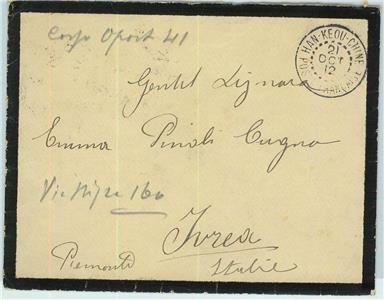 HAN-KEOU-CHINE
21
OCT
12
POSTE FRANÇAISE
Corso Oport 41
Gentil Signora
Emma Pinoli Cugno
160
Ivrea
Piemonte
Italie